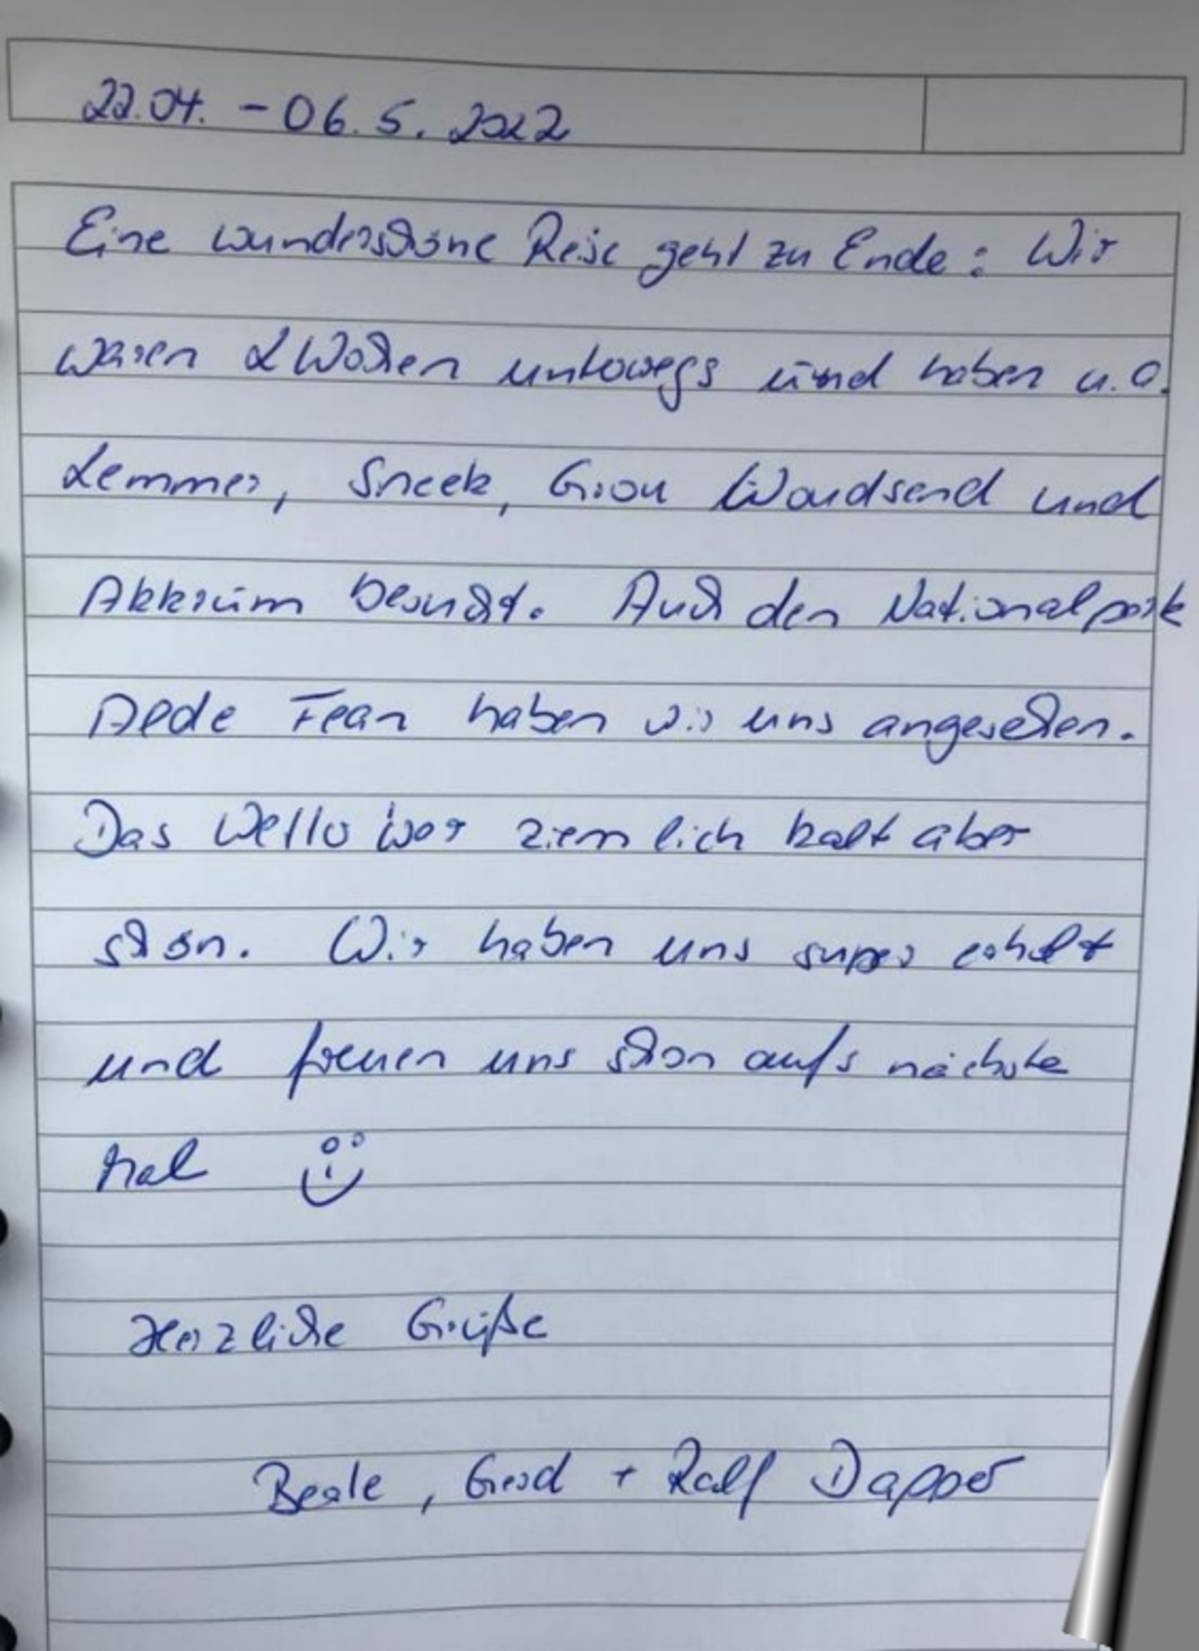 22.04. - 06.5.2022
Eine wunderschöne Reise geht zu Ende: Wir
waren 2 Wochen unterwegs und haben u.a.
Lemmer, Sneek, Grou Woudsend und
Akkrum besucht. Auch den Nationalpark
Alde Fean haben wir uns angesehen.
Das Wetter war ziemlich kalt aber
schön. Wir haben uns super erholt
und freuen uns schon aufs nächste
Mal
Herzliche Grüße
Beate, Gerd + Ralf Dapper